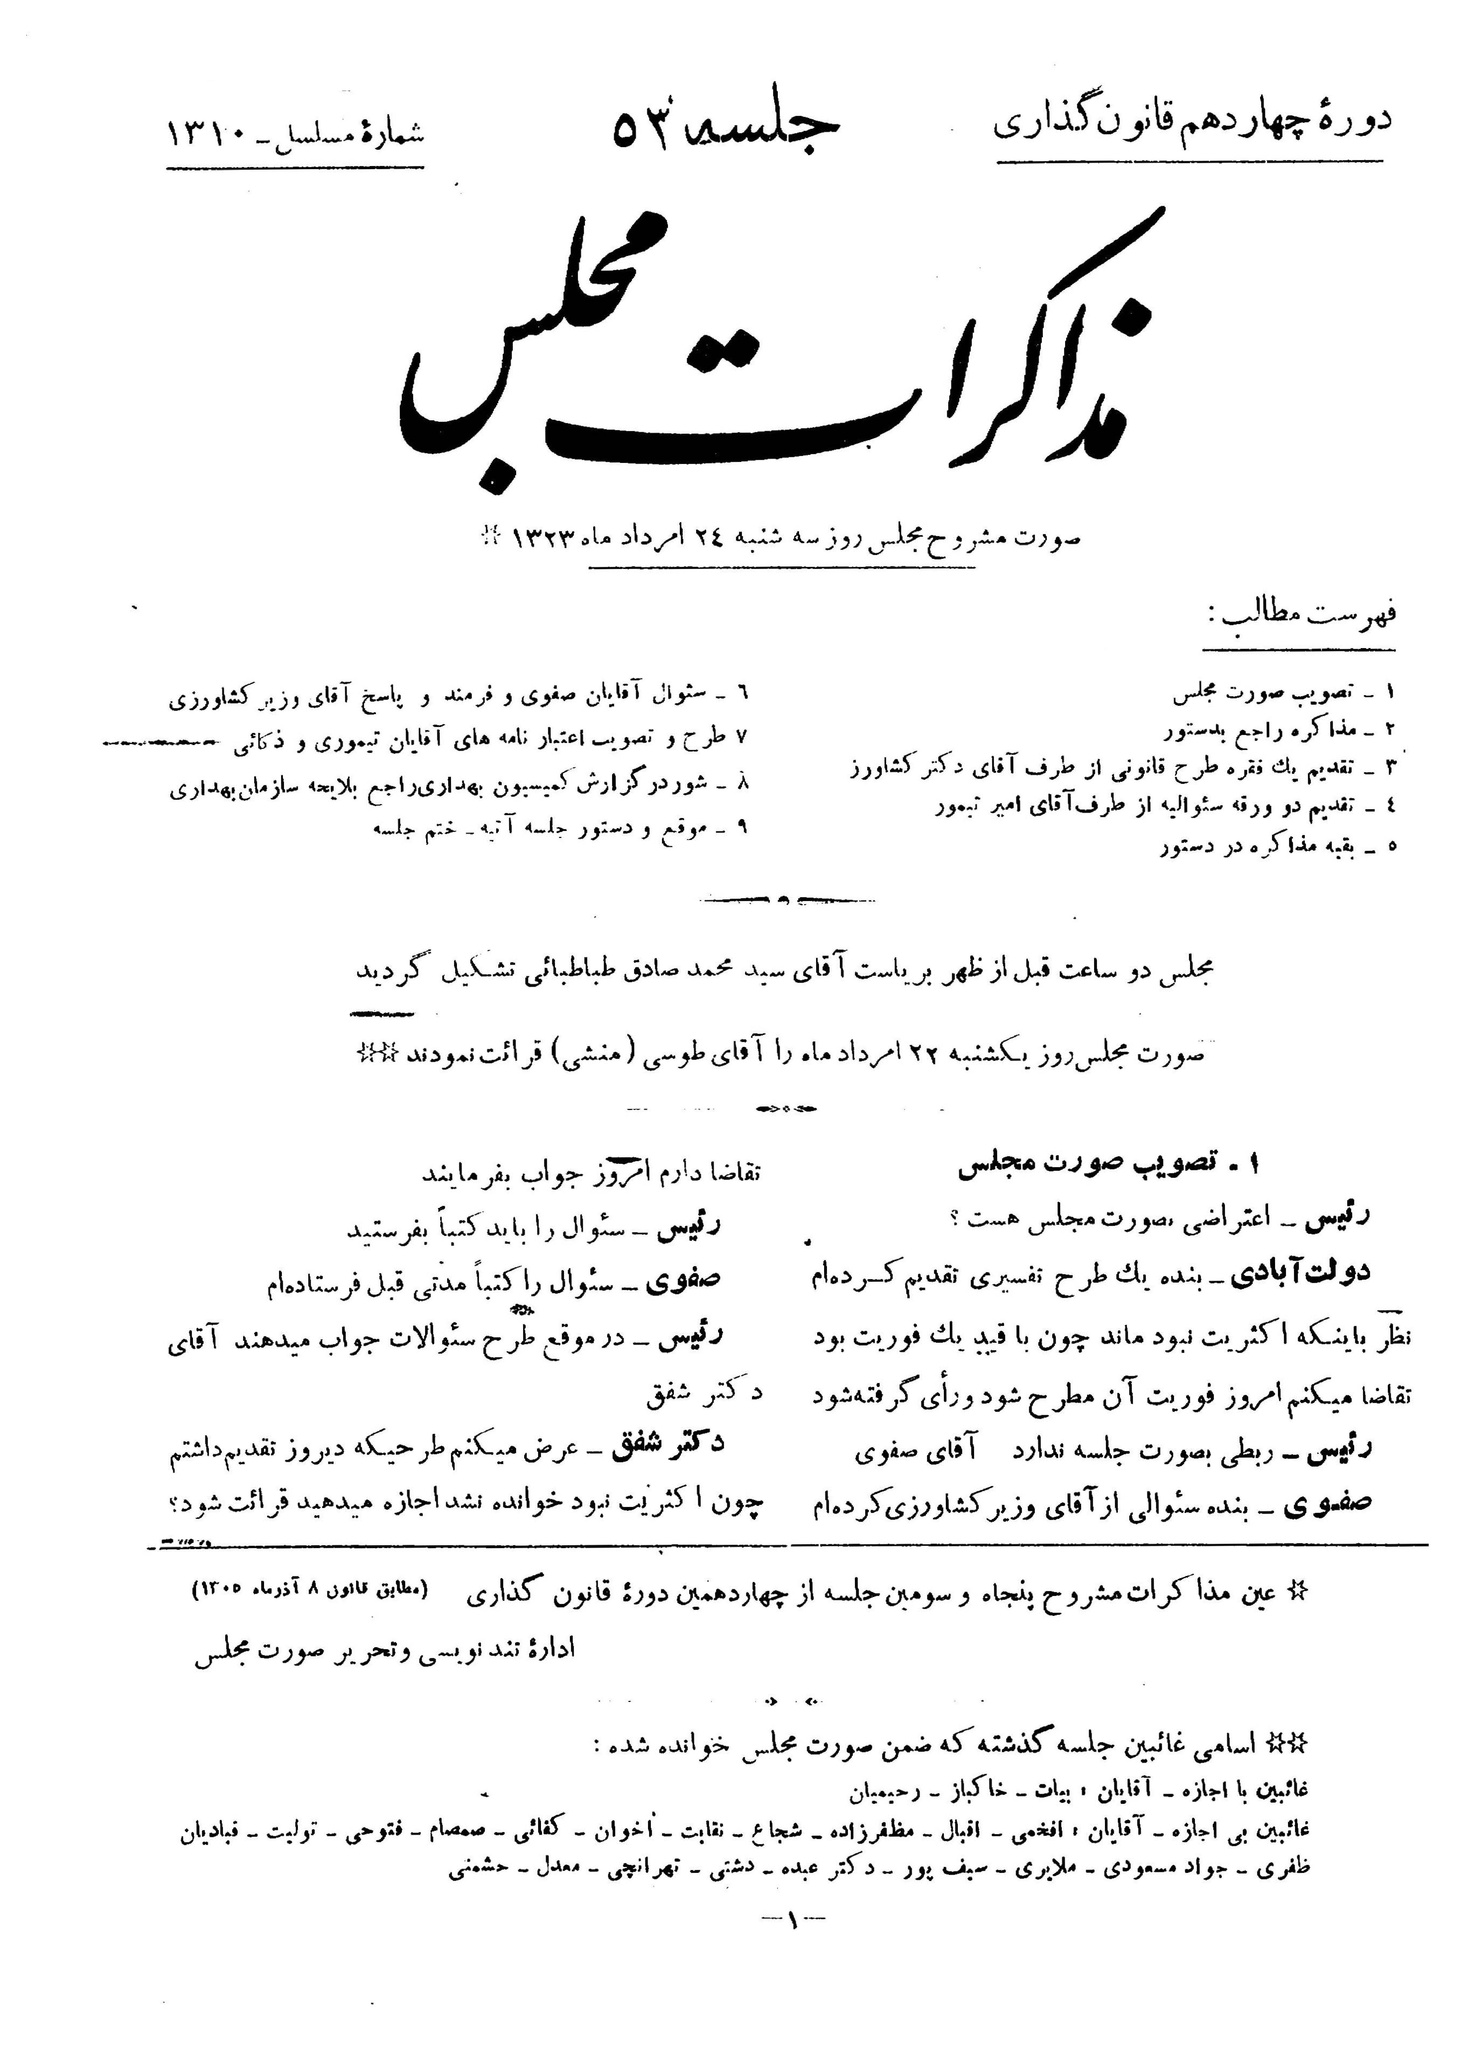 دورهٔ چهاردهم قانون گذاری
جلسه ۵۳
شمارهٔ مسلسل ـ ۱۳۱۰
مذاکرات مجلس
صورت مشروح مجلس روز سه شنبه ۲٤ امرداد ماه ۱۳۲۳ ☆
فهرست مطالب :
۱ ـ تصویب صورت مجلس
۲ ـ مذاکره راجع بدستور
۳ ـ تقدیم یك فقره طرح قانونی از طرف آقای دکتر کشاورز
٤ ـ تقدیم دو ورقه سئوالیه از طرف آقای امیر تیمور
۵ ـ بقیه مذاکره در دستور
٦ ـ سئوال آقایان صفوی و فرمند و پاسخ آقای وزیر کشاورزی
۷ طرح و تصویب اعتبار نامه های آقایان تیموری و ذکائی
۸ ـ شور در گزارش کمیسیون بهداری راجع بلایحه سازمان بهداری
۹ ـ موقع و دستور جلسه آتیه ـ ختم جلسه
مجلس دو ساعت قبل از ظهر بریاست آقای سید محمد صادق طباطبائی تشکیل گردید
صورت مجلس روز یکشنبه ۲۲ امرداد ماه را آقای طوسی (منشی) قرائت نمودند ☆☆
۱ ـ تصویب صورت مجلس
رئیس ـ اعتراضی بصورت مجلس هست ؟
دولت آبادی ـ بنده یك طرح تفسیری تقدیم کرده‌ام
نظر باینکه اکثریت نبود ماند چون با قید یك فوریت بود
تقاضا میکنم امروز فوریت آن مطرح شود و رأی گرفته شود
رئیس ـ ربطی بصورت جلسه ندارد آقای صفوی
صفوی ـ بنده سئوالی از آقای وزیر کشاورزی کرده‌ام
تقاضا دارم امروز جواب بفرمایند
رئیس ـ سئوال را باید کتباً بفرستید
صفوی ـ سئوال را کتباً مدتی قبل فرستاده‌ام
رئیس ـ در موقع طرح سئوالات جواب میدهند آقای
دکتر شفق
دکتر شفق ـ عرض میکنم طرحیکه دیروز تقدیم داشتم
چون اکثریت نبود خوانده نشد اجازه میدهید قرائت شود؟
☆ عین مذاکرات مشروح پنجاه و سومین جلسه از چهاردهمین دورهٔ قانون گذاری (مطابق قانون ۸ آذرماه ۱۳۰۵)
ادارهٔ تند نویسی و تحریر صورت مجلس
☆☆ اسامی غائبین جلسه گذشته که ضمن صورت مجلس خوانده شده :
غائبین با اجازه ـ آقایان : بیات ـ خاکباز ـ رحیمیان
غائبین بی اجازه ـ آقایان : افخمی ـ اقبال ـ مظفرزاده ـ شجاع ـ نقابت ـ اخوان ـ کفائی ـ صمصام ـ فتوحی ـ تولیت ـ قبادیان
ظفری ـ جواد مسعودی ـ ملایری ـ سیف پور ـ دکتر عبده ـ دشتی ـ تهرانچی ـ معدل ـ حشمتی
—۱—